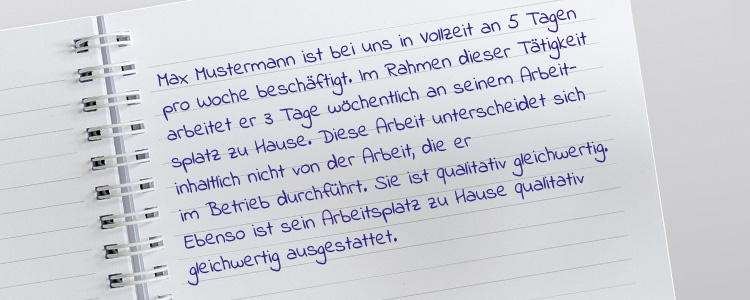 Max Mustermann ist bei uns in Vollzeit an 5 Tagen
pro Woche beschäftigt. Im Rahmen dieser Tätigkeit
arbeitet er 3 Tage wöchentlich an seinem Arbeit-
splatz zu Hause. Diese Arbeit unterscheidet sich
inhaltlich nicht von der Arbeit, die er
im Betrieb durchführt. Sie ist qualitativ gleichwertig.
Ebenso ist sein Arbeitsplatz zu Hause qualitativ
gleichwertig ausgestattet.